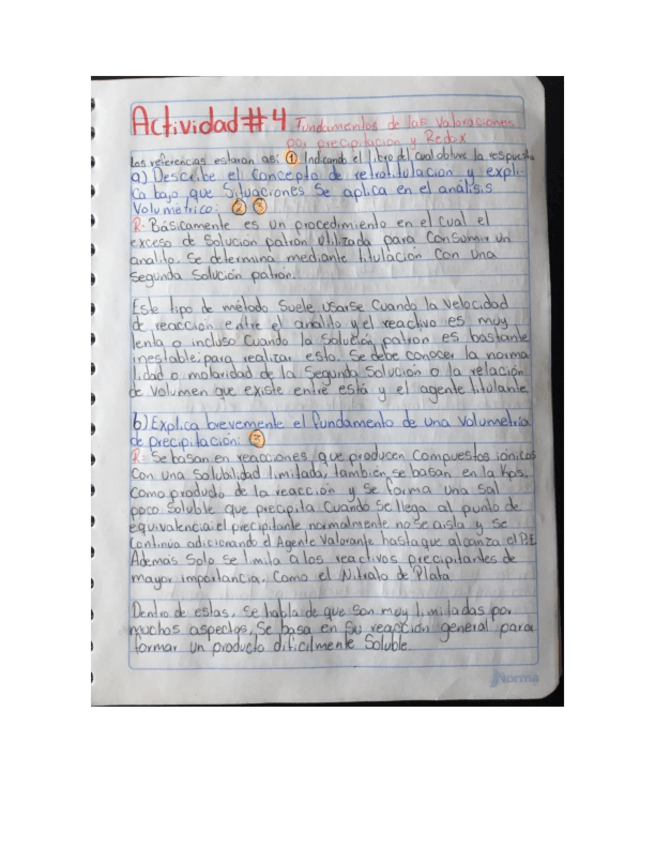 Actividad#4 Fundamentos de las Valoraciones
por precipitación y Redox
Las referencias estaran asi: ① Indicando el libro del cual obtuve la respuesta
a) Describe el Concepto de retrotitulación y expli-
ca bajo que Situaciones Se aplica en el análisis
Volumetrico: ② ③
R- Básicamente es un procedimiento en el cual el
exceso de Solución patron Utilizada para Consumir un
analito. Se determina mediante titulación Con una
Segunda Solución patrón.
Este tipo de método Suele usarse Cuando la Velocidad
de reacción entre el analito y el reactivo es muy
lenta o incluso Cuando la Solución patron es bastante
inestable; para realizar esto. Se debe conocer la norma
lidad o molaridad de la Segunda Solución o la relación
de Volumen que existe entre está y el agente titulante
b) Explica brevemente el fundamento de una Volumetria
de precipitación:
R= Se basan en reacciones, que producen Compuestos iónicos
Con una Solubilidad limitada, también se basan en la Kps.
Como producto de la reacción y Se forma una Sal
poco Soluble que precipita Cuando Se llega al punto de
equivalencia: el precipitante normalmente no Se aisla y Se
Continúa adicionando el Agente Valorante hasta que alcanza el P.E
Además Solo Se limita a los reactivos precipitantes de
mayor importancia, Como el Nitrato de Plata
Dentro de estas, Se habla de que Son muy limitadas por
muchos aspectos, Se basa en Su reacción general para
formar un producto dificilmente Soluble.
Norma